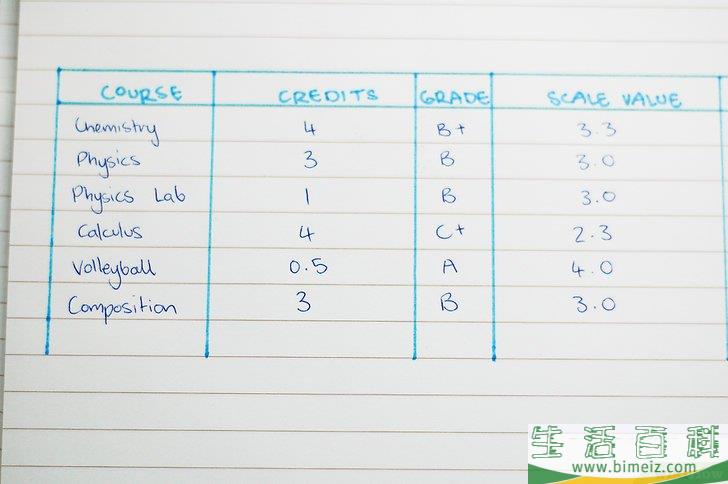 COURSE CREDITS GRADE SCALE VALUE
Chemistry 4 B+ 3.3
Physics 3 B 3.0
Physics Lab 1 B 3.0
Calculus 4 C+ 2.3
Volleyball 0.5 A 4.0
Composition 3 B 3.0
生活百科
www.bimeiz.com